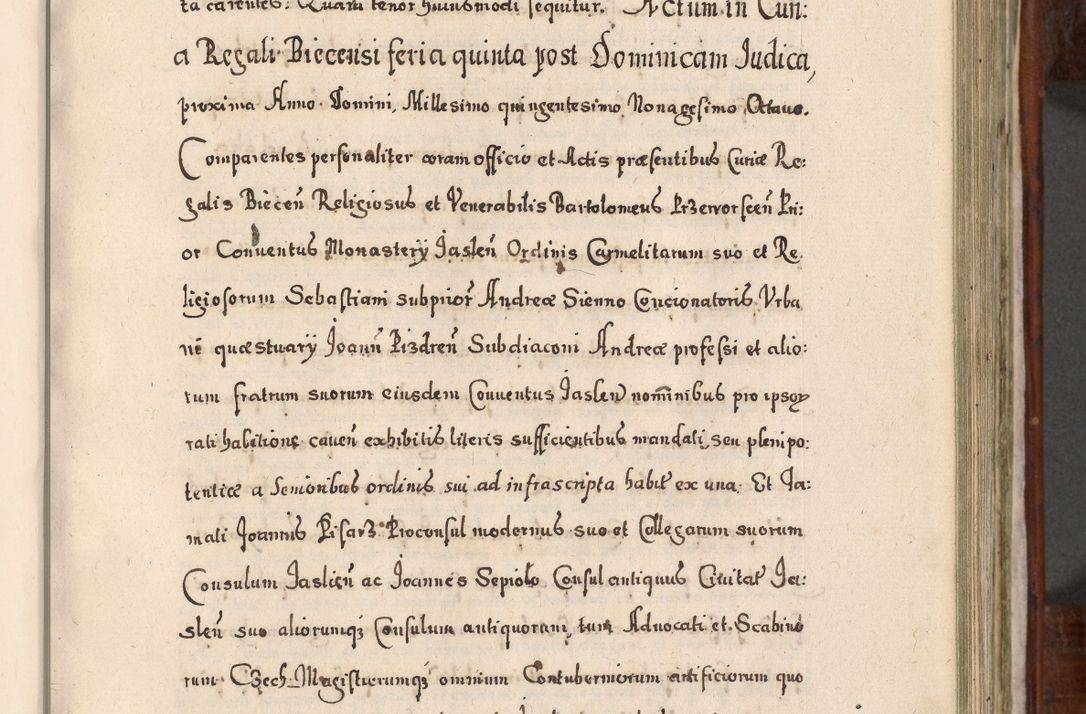 ta carentes: Quaru tenor huiusmodi sequitur. Actum in Cun:
a Regali Biecensi feria quinta post Dominicam Judica,
proxima Anno Domini, Millesimo quingentesimo Nonagesimo Octauo.
Comparentes personaliter coram officio et Actis præsentibus Curiæ Re:
galis Biecen̄ Religiosus et Venerabilis Bartolomeus Przeworscen̄ Pri:
or Conuentus Monastery Jaslen̄ Ordinis Carmelitarum suo et Re
ligiosorum Sebastiani subprior̄ Andreæ Sienno Concionatoris Vrba
ni quæstuary Joan̄n̄ Pizdren̄ Subdiaconi Andreæ professi et alio:
rum fratrum suorum eiusdem Conuentus Jaslen̄ nom̄inibus pro ipsor
rati habitione cauen̄ exhibitis literis sufficientibus mandati, seu plenipo:
tentiæ a Senioribus ordinis sui ad infrascripta habit̄ ex una. Et Fa:
mati Joannis Pisarz Proconsul modernus suo et Collegarum suorum
Consulum Jaslien̄ ac Joannes Sepiolo Consul antiquus Ciuitat̄ Ja:
slen̄ suo aliorumqz Consulum antiquorum, tum Aduocati et Scabino
rum Czech Magistrorumqz omnium Contuberniorum artificiorum quo